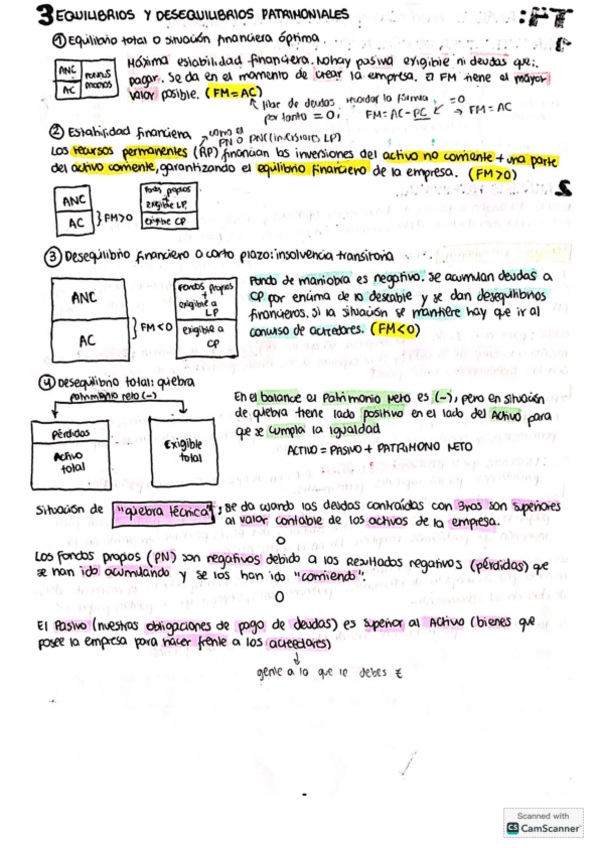 3 EQUILIBRIOS Y DESEQUILIBRIOS PATRIMONIALES
① Equilibrio total o situación financiera óptima.
ANC
AC
Máxima estabilidad financiera. No hay pasivo exigible ni deudas que
pagar. Se da en el momento de crear la empresa. El FM tiene el mayor
valor posible. (FM=AC)
libre de deudas
por tanto = 0
recordar la fórmula
FM=AC-PC
=0
→ FM=AC
② Estabilidad financiera
PN o PNC
Los recursos permanentes (RP) financian las inversiones del activo no corriente + una parte
del activo corriente, garantizando el equilibrio financiero de la empresa. (FM>0)
ANC
AC
} FM>0
fondos propios
+
exigible LP
exigible CP
③ Desequilibrio financiero a corto plazo: insolvencia transitoria
ANC
AC
} FM<0
Fondos propios
+
exigible a
LP
exigible a
CP
Fondo de maniobra es negativo. Se acumulan deudas a
CP por encima de lo deseable y se dan desequilibrios
financieros. Si la situación se mantiene hay que ir al
concurso de acreedores. (FM<0)
④ Desequilibrio total: quiebra
patrimonio neto (-)
Pérdidas
Activo
total
Exigible
total
En el balance el Patrimonio Neto es (-), pero en situación
de quiebra tiene lado positivo en el lado del Activo para
que se cumpla la igualdad
ACTIVO = PASIVO + PATRIMONO NETO
Situación de "quiebra técnica", se da cuando las deudas contraídas con 3ros son superiores
al valor contable de los activos de la empresa.
o
Los Fondos propios (PN) son negativos debido a los Resultados negativos (pérdidas) que
se han ido acumulando y se los han ido "comiendo".
o
El Pasivo (nuestras obligaciones de pago de deudas) es superior al Activo (bienes que
posee la empresa para hacer frente a los acreedores)
↓
gente a la que le debes €
Scanned with
CS CamScanner